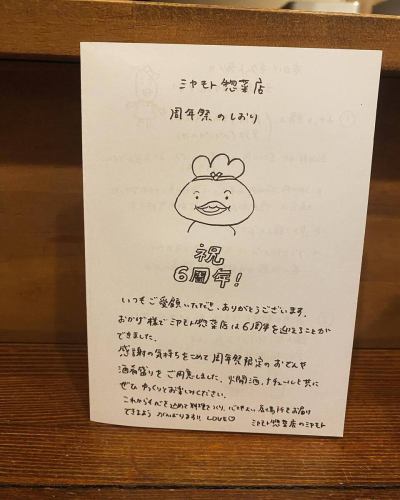 ミヤモト惣菜店
周年祭のしおり
祝
6周年!
いつもご愛顧いただき、ありがとうございます。
おかげ様でミヤモト惣菜店は6周年を迎えることが
できました。
感謝の気持ちをこめて周年祭限定のおでんや
酒肴盛りをご用意しました。火間酒、ナチュールと共に
ぜひゆっくりとお楽しみください。
これからも心を込めて料理をつくり、心地よい居場所をお届け
できるよう がんばります!! LOVE♡
ミヤモト惣菜店のミヤモト